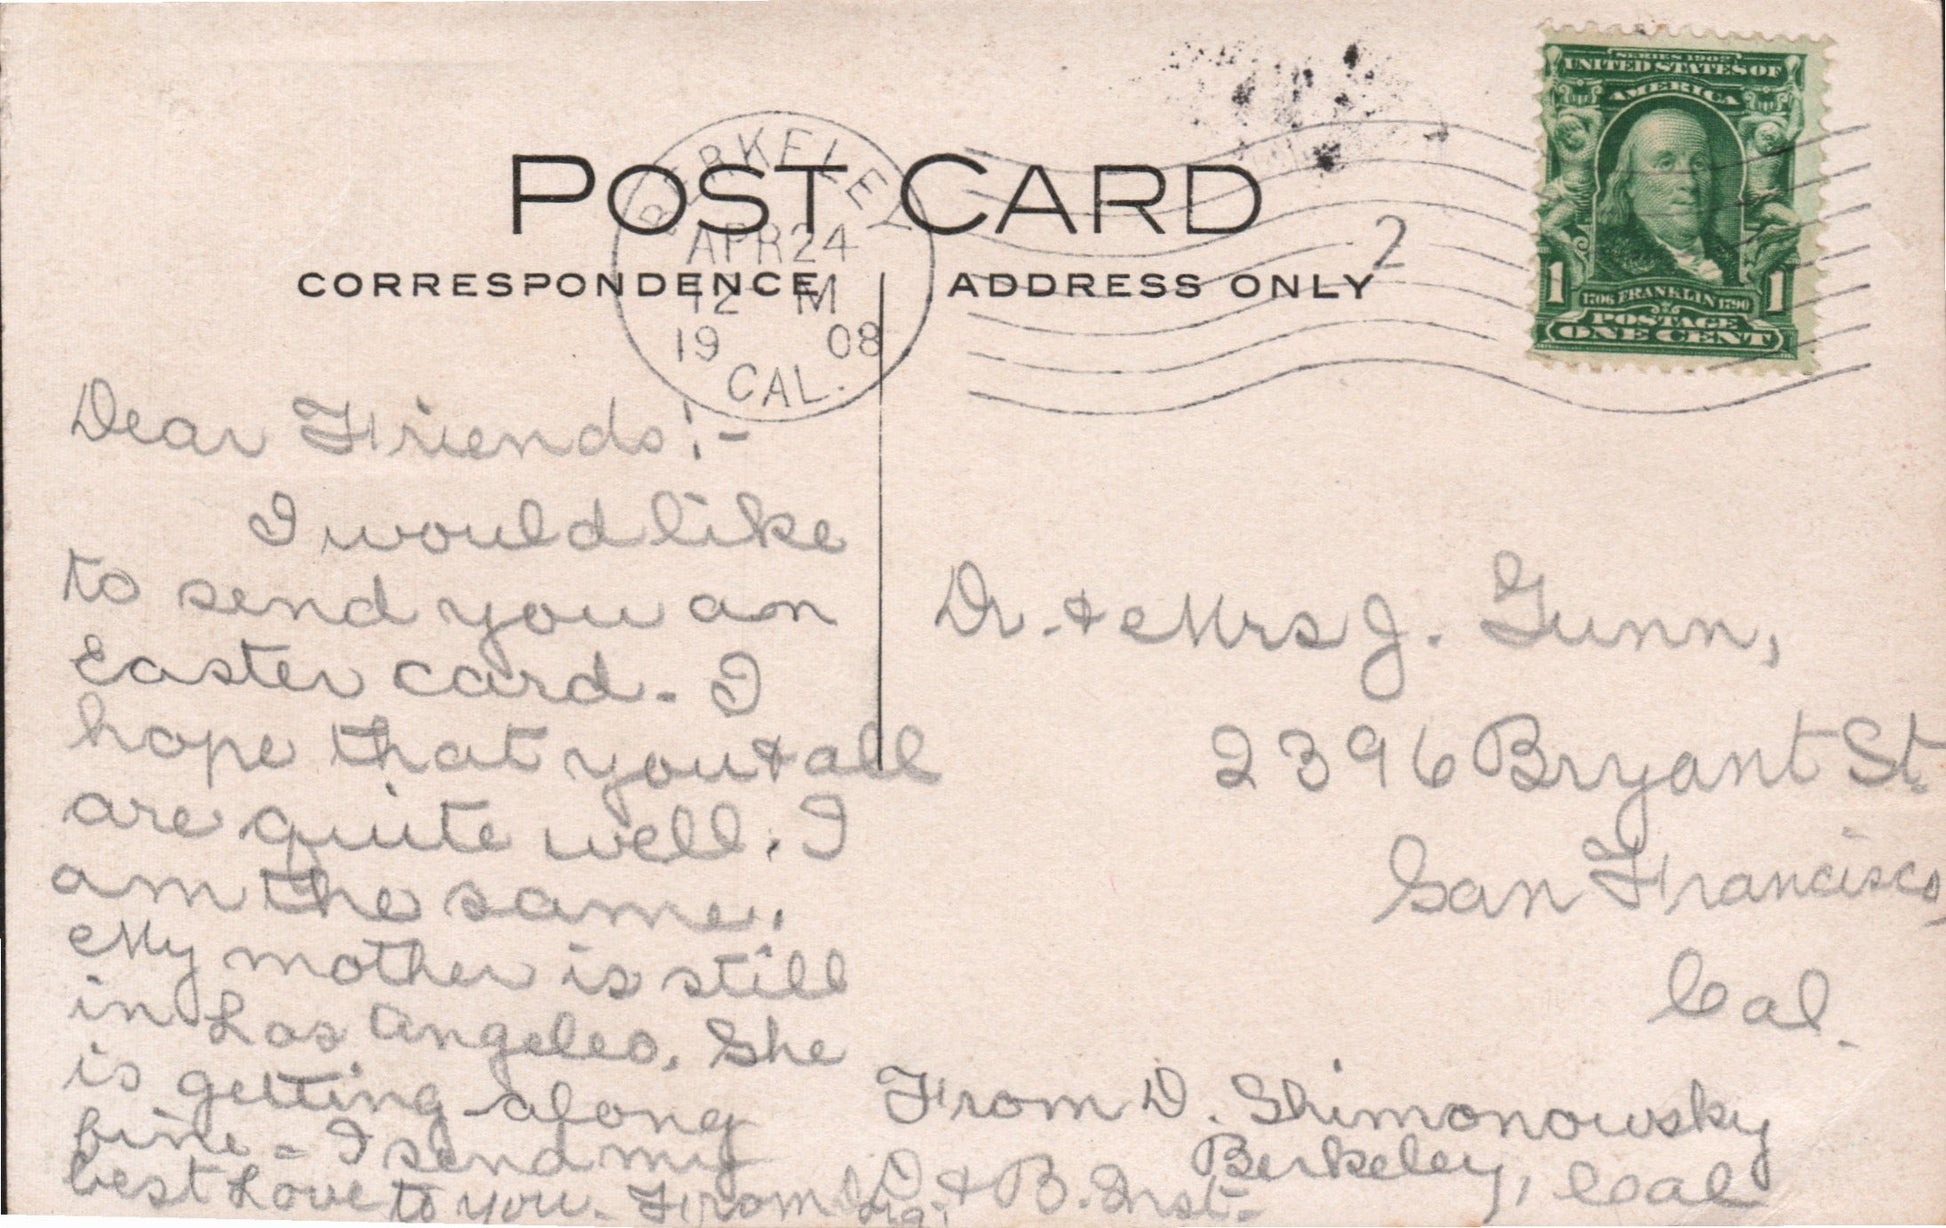 POST CARD
CORRESPONDENCE
ADDRESS ONLY
BERKELEY
APR 24
12 M
19 08
CAL.
2
SERIES 1902
UNITED STATES OF
AMERICA
1 1706 FRANKLIN 1790 1
POSTAGE
ONE CENT
Dear Friends!-
I would like
to send you an
Easter card. I
hope that you & all
are quite well. I
am the same.
My mother is still
in Los Angeles. She
is getting along
fine - I send my
best Love to you. From
D & B. Inst.
Dr. & Mrs J. Gunn,
2396 Bryant St.
San Francisco,
Cal.
From D. Shimonowsky
Berkeley, Cal